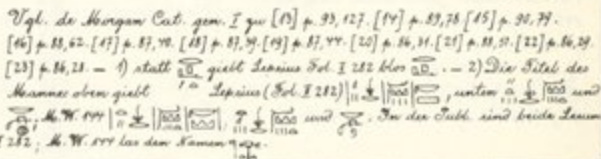 Vgl. de Morgan Cat. gen. I zu [13] p. 93, 127. [14] p. 89, 78. [15] p. 90, 79.
[16] p. 88, 62. [17] p. 87, 40. [18] p. 87, 39. [19] p. 87, 44. [20] p. 86, 31. [21] p. 88, 51. [22] p. 86, 29.
[23] p. 86, 28. — 1) statt giebt Lepsius Fol. I 282 blos . — 2) Die Titel des
Mannes oben giebt Lepsius (Fol. I 282) , unten und
; M. W. 544 , und . In der Publ. sind beide
I 282; M. W. 544 las den Namen